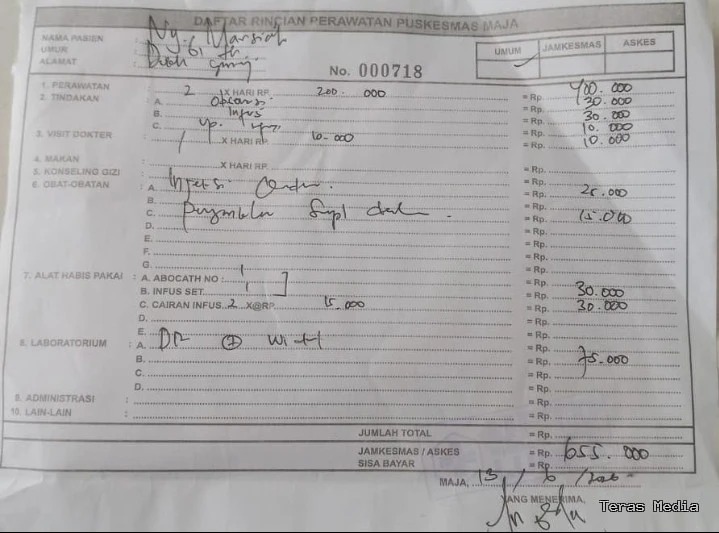 DAFTAR RINCIAN PERAWATAN PUSKESMAS MAJA
NAMA PASIEN : Ny. Marsiah
UMUR : 61 th
ALAMAT :
UMUM JAMKESMAS ASKES
No. 000718
1. PERAWATAN : 2 X HARI RP. 200.000 = Rp. 400.000
2. TINDAKAN : A. Observasi = Rp. 30.000
B. Infus = Rp. 30.000
C. up. = Rp. 10.000
3. VISIT DOKTER : 1 X HARI RP. 10.000 = Rp. 10.000
4. MAKAN : X HARI RP. = Rp.
5. KONSELING GIZI : = Rp.
6. OBAT-OBATAN : A. Injeksi = Rp. 25.000
B. = Rp.
C. = Rp. 15.000
D. = Rp.
E. = Rp.
F. = Rp.
G. = Rp.
7. ALAT HABIS PAKAI : A. ABOCATH NO : 1 = Rp.
B. INFUS SET 1 = Rp. 30.000
C. CAIRAN INFUS 2 X@RP. 15.000 = Rp. 30.000
D. = Rp.
E. = Rp.
8. LABORATORIUM : A. DR + = Rp. 75.000
B. = Rp.
C. = Rp.
D. = Rp.
9. ADMINISTRASI : = Rp.
10. LAIN-LAIN : = Rp.
JUMLAH TOTAL = Rp.
JAMKESMAS / ASKES = Rp. 655.000
SISA BAYAR = Rp.
MAJA, 13 / 6 /
YANG MENERIMA,
Teras Media